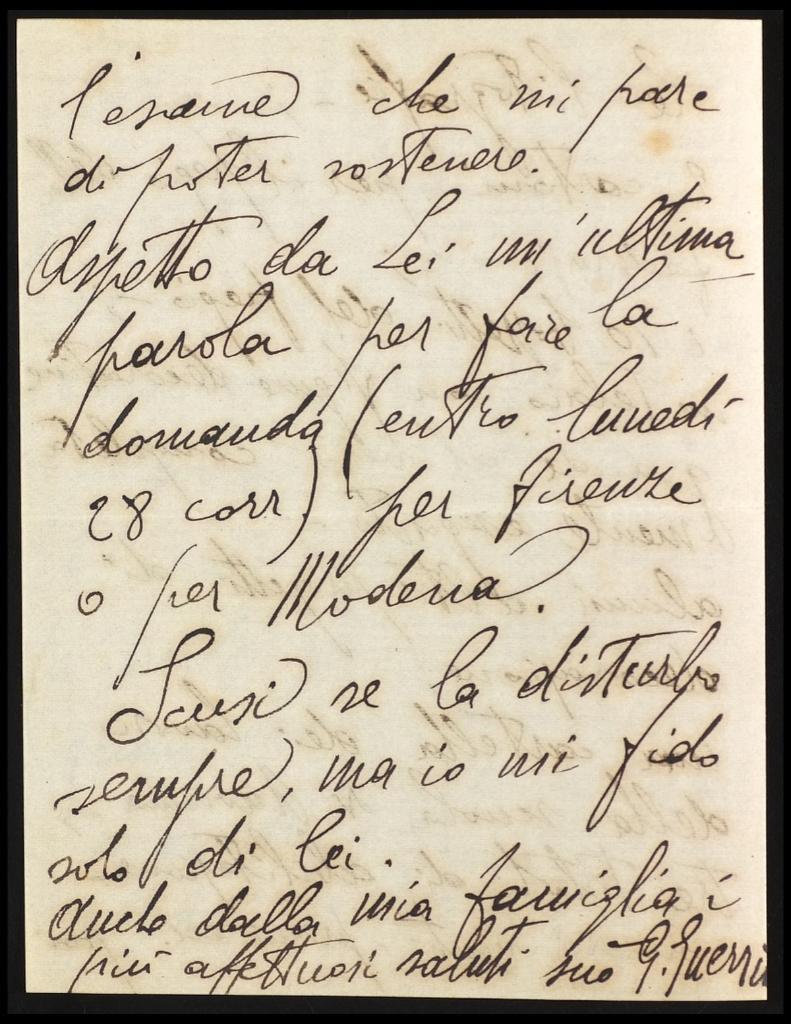 l'esame che mi pare
di poter sostenere.
Aspetto da Lei un'ultima
parola per fare la
domanda (entro lunedì
28 corr.) per Firenze
o per Modena.
Scusi se la disturbo
sempre, ma io mi fido
solo di lei.
Anche dalla mia famiglia i
più affettuosi saluti suo G. Guerri